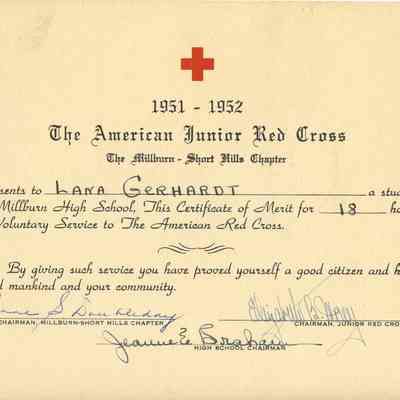 1951 - 1952
The American Junior Red Cross
The Millburn - Short Hills Chapter
sents to LANA GERHARDT a stu
Millburn High School, This Certificate of Merit for 18 ho
Voluntary Service to The American Red Cross.
By giving such service you have proved yourself a good citizen and h
d mankind and your community.
S. Doubleday
CHAIRMAN, MILLBURN-SHORT HILLS CHAPTER
Elizabeth B.
CHAIRMAN, JUNIOR RED CROS
Jeanne Braham
HIGH SCHOOL CHAIRMAN